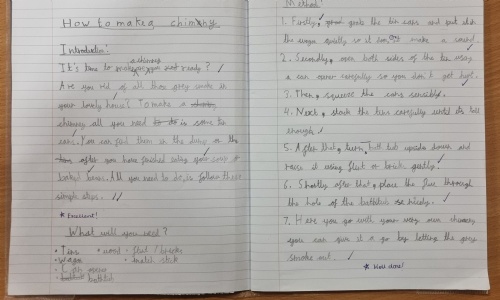 How to make a chimney
Introduction:
a chimney
It's time to make are you ready?
Are you rid of all this grey smoke in
your lovely house? To make a
chimney all you need to do is some tin
cans. You can find them in the or the
after you have finished eating your soup or
baked beans. All you need to do, is follow these
simple steps.
* Excellent!
What will you need?
• Tins • wood • flint / bricks
• match stick
• Can opener
• bathtub
Method:
1. Firstly, grab the tin cans and put
the quietly so it can make a sound.
2. Secondly, open both sides of the tin using
a can owner carefully so you don't get hurt.
3. Then, squeeze the cans sensibly.
4. Next, stack the tins carefully until its tall
enough.
5. After that, turn bath tub upside down and
raise it using flint or brick.
6. Shortly after that, place the flue through
the hole of the bathtub so nicely.
7. Here you go with your very own chimney
you can give it a go by letting the grey
smoke out.
* Well done!